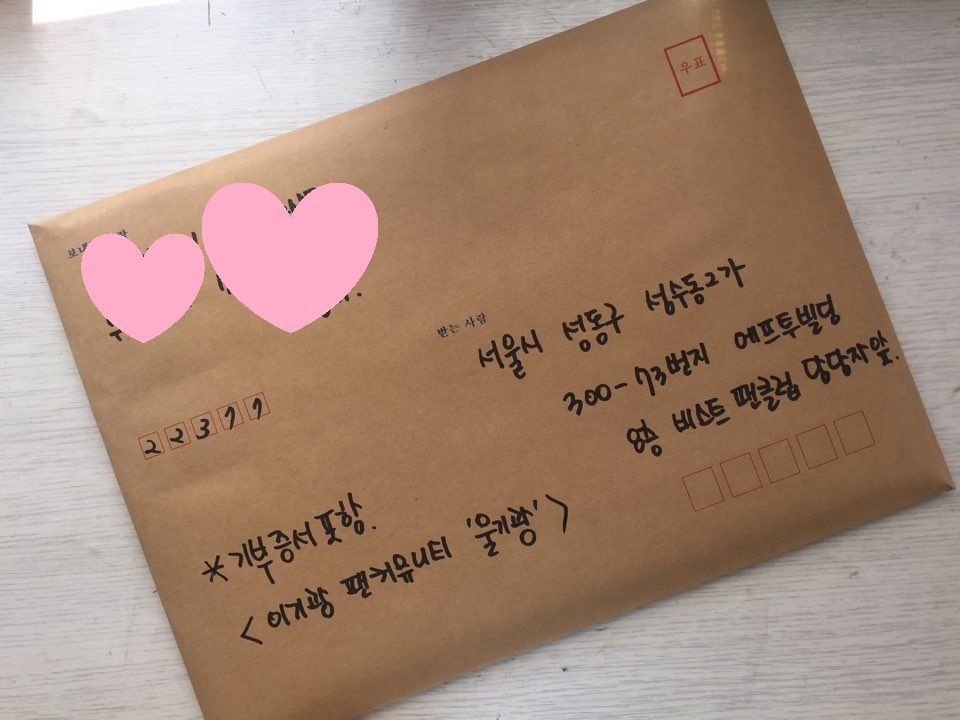 우표
받는 사람
서울시 성동구 성수동2가
300-73번지 에프투빌딩
8층 비스트 팬클럽 담당자 앞.
22377
*기부증서 포함.
<이기광 팬커뮤니티 '울기광'>